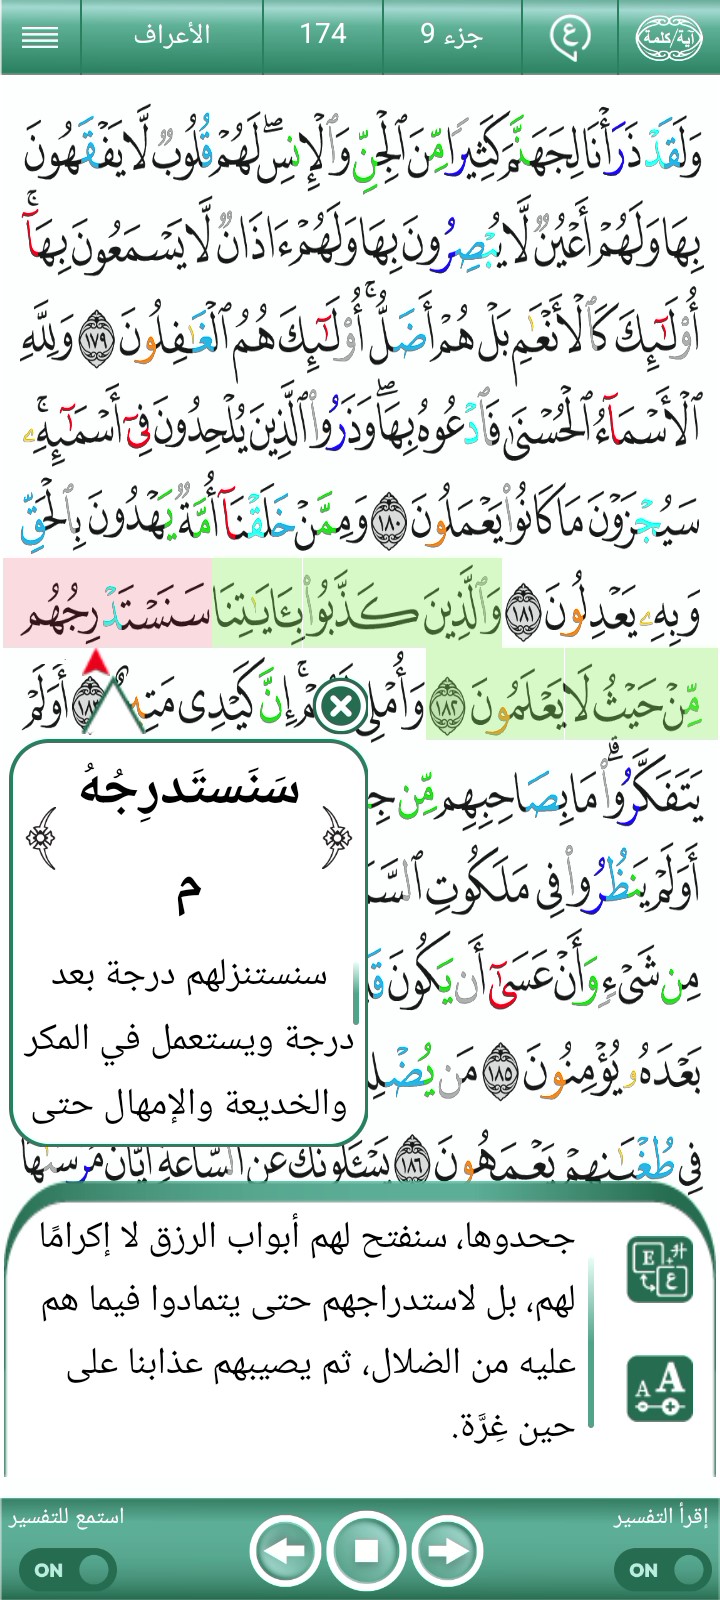 آية/كلمة
ع
جزء 9
174
الأعراف
وَلَقَدْ ذَرَأْنَا لِجَهَنَّمَ كَثِيرًا مِّنَ ٱلْجِنِّ وَٱلْإِنسِ ۖ لَهُمْ قُلُوبٌ لَّا يَفْقَهُونَ
بِهَا وَلَهُمْ أَعْيُنٌ لَّا يُبْصِرُونَ بِهَا وَلَهُمْ ءَاذَانٌ لَّا يَسْمَعُونَ بِهَآ ۚ
أُو۟لَـٰٓئِكَ كَٱلْأَنْعَـٰمِ بَلْ هُمْ أَضَلُّ ۚ أُو۟لَـٰٓئِكَ هُمُ ٱلْغَـٰفِلُونَ ١٧٩ وَلِلَّهِ
ٱلْأَسْمَآءُ ٱلْحُسْنَىٰ فَٱدْعُوهُ بِهَا ۖ وَذَرُوا۟ ٱلَّذِينَ يُلْحِدُونَ فِىٓ أَسْمَـٰٓئِهِۦ ۚ
سَيُجْزَوْنَ مَا كَانُوا۟ يَعْمَلُونَ ١٨٠ وَمِمَّنْ خَلَقْنَآ أُمَّةٌ يَهْدُونَ بِٱلْحَقِّ
وَبِهِۦ يَعْدِلُونَ ١٨١ وَٱلَّذِينَ كَذَّبُوا۟ بِـَٔايَـٰتِنَا سَنَسْتَدْرِجُهُم
مِّنْ حَيْثُ لَا يَعْلَمُونَ ١٨٢ وَأُمْلِى إِنَّ كَيْدِى ١٨٣ أَوَلَمْ
يَتَفَكَّرُوا۟ ۗ مَا بِصَاحِبِهِم مِّن
أَوَلَمْ يَنظُرُوا۟ فِى مَلَكُوتِ
مِن شَىْءٍ وَأَنْ عَسَىٰٓ أَن يَكُونَ
بَعْدَهُۥ يُؤْمِنُونَ ١٨٥ مَن
فِى طُغْيَـٰنِهِمْ يَعْمَهُونَ ١٨٦ يَسْـَٔلُونَكَ عَنِ ٱلسَّاعَةِ أَيَّانَ مُرْسَىٰهَا
سَنَستَدرِجُهُ
م
سنستنزلهم درجة بعد
درجة ويستعمل في المكر
والخديعة والإمهال حتى
جحدوها، سنفتح لهم أبواب الرزق لا إكرامًا
لهم، بل لاستدراجهم حتى يتمادوا فيما هم
عليه من الضلال، ثم يصيبهم عذابنا على
حين غِرَّة.
E
ع
A A
إقرأ التفسير
استمع للتفسير
ON
ON